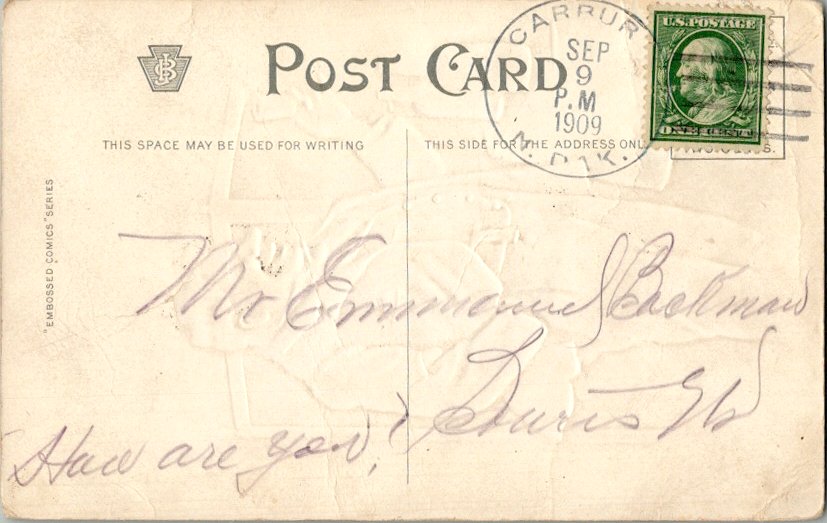 POST CARD
CARBURY
SEP
9
P.M
1909
N. DAK.
U.S. POSTAGE
ONE CENT
THIS SPACE MAY BE USED FOR WRITING
THIS SIDE FOR THE ADDRESS ONL
"EMBOSSED COMICS" SERIES
Mr Emmanuel Backman
Souris ND
How are you?